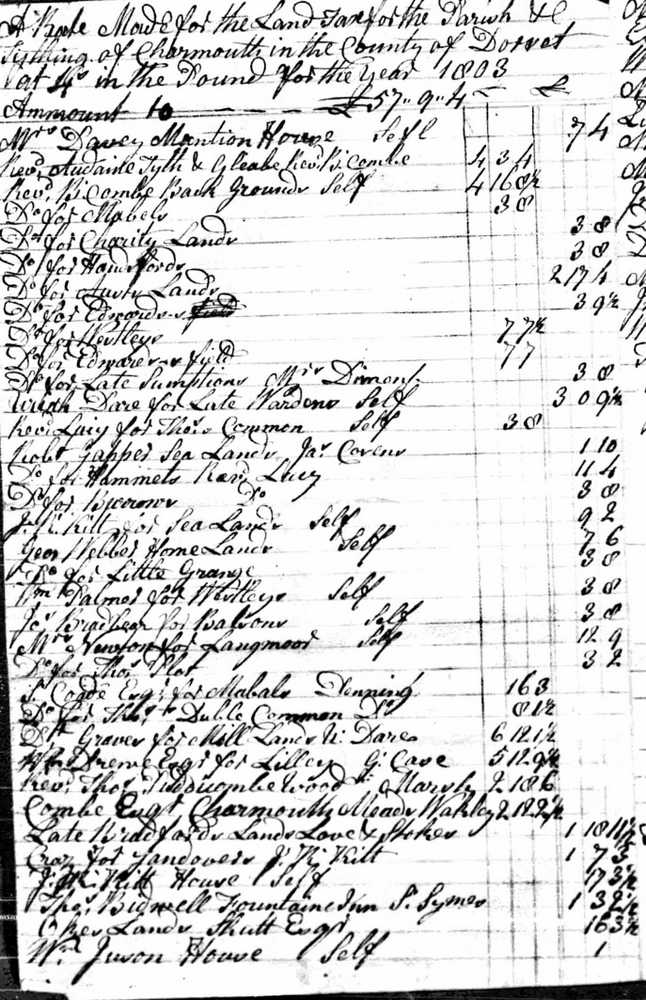 A Rate Made for the Land Tax for the Parish &
Tything of Charmouth in the County of Dorset
at 4s in the Pound for the Year 1803
Ammount to £57-9-4
Mrs Davey Mantion House Self 7 4
Revd Audaine Tyth & Gleabe Revd B. Combe 4 3 4
Revd B. Combe Back Grounds Self 4 16 8½
Do for Mabels 3 8
Do for Charity Lands 3 8
Do for Handfords 3 8
Do for Lands 2 17 4
Do for Edwards 3 9½
Do for Westleys 7 7½
Do for Edwards field 7 7
Do for Late Sumptions Mrs Diment 3 8
Uriah Dare for Late Wardens Self 3 0 9½
Revd for Thos Common Self 3 8
Robt Gapper Sea Lands Jas Corens 1 10
Do for Hammets Lucy 11 4
Do for Do 3 8
J. R. Kilt for Sea Lands Self 9 2
Geor Webber Home Lands Self 7 6
Do for Little Grange 3 8
Wm Palmer for Westleys Self 3 8
Jos for Balsons Self 3 8
Mrs Newton for Langmoor Self 12 9
Do for Thos Plot 3 2
Esqr for Mabals Denning 16 3
Do for Thos Duble Common Do 8 1½
Graves for Mill Lands U. Dare 6 12 1½
Wm Drewe Esqr for Lilley G. Case 5 12 9½
Revd Thos Tiddicombe Wood Marsh 2 18 6
Combe Esqr Charmouth Meads Wakley 2 18 2½
Late Bradfords Lands Love & Stokes 1 18 11½
for Yandovers J. R. Kilt 1 7 3½
J. R. Kilt House Self 17 3½
Thos Bidwell Fountaine Inn S. Symes 1 3 2½
Lands Shutt Esqr 16 3½
Wm Juson House Self 1